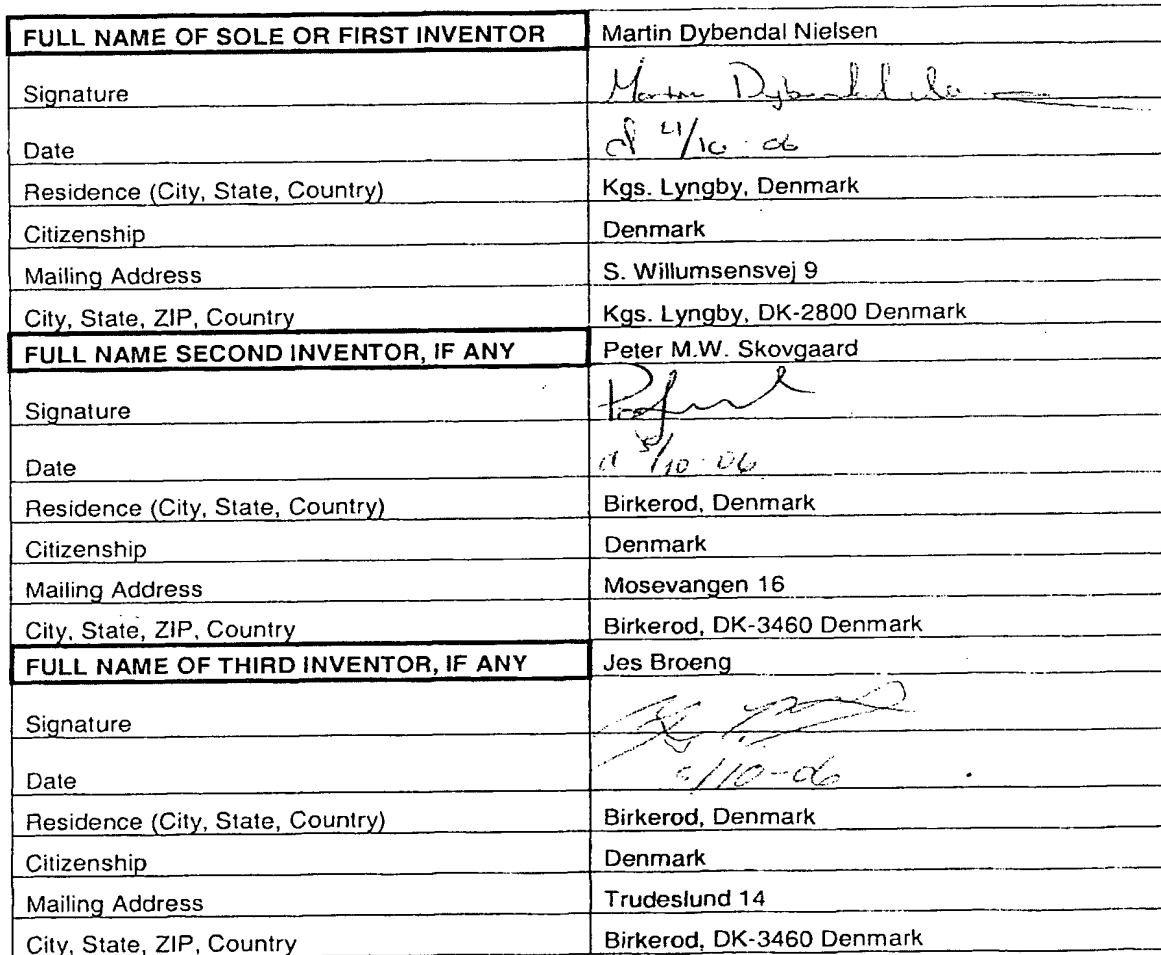 FULL NAME OF SOLE OR FIRST INVENTOR Martin Dybendal Nielsen
Signature Martin Dybendal
Date /10-06
Residence (City, State, Country) Kgs. Lyngby, Denmark
Citizenship Denmark
Mailing Address S. Willumsensvej 9
City, State, ZIP, Country Kgs. Lyngby, DK-2800 Denmark
FULL NAME SECOND INVENTOR, IF ANY Peter M.W. Skovgaard
Signature
Date /10-06
Residence (City, State, Country) Birkerod, Denmark
Citizenship Denmark
Mailing Address Mosevangen 16
City, State, ZIP, Country Birkerod, DK-3460 Denmark
FULL NAME OF THIRD INVENTOR, IF ANY Jes Broeng
Signature
Date /10-06
Residence (City, State, Country) Birkerod, Denmark
Citizenship Denmark
Mailing Address Trudeslund 14
City, State, ZIP, Country Birkerod, DK-3460 Denmark